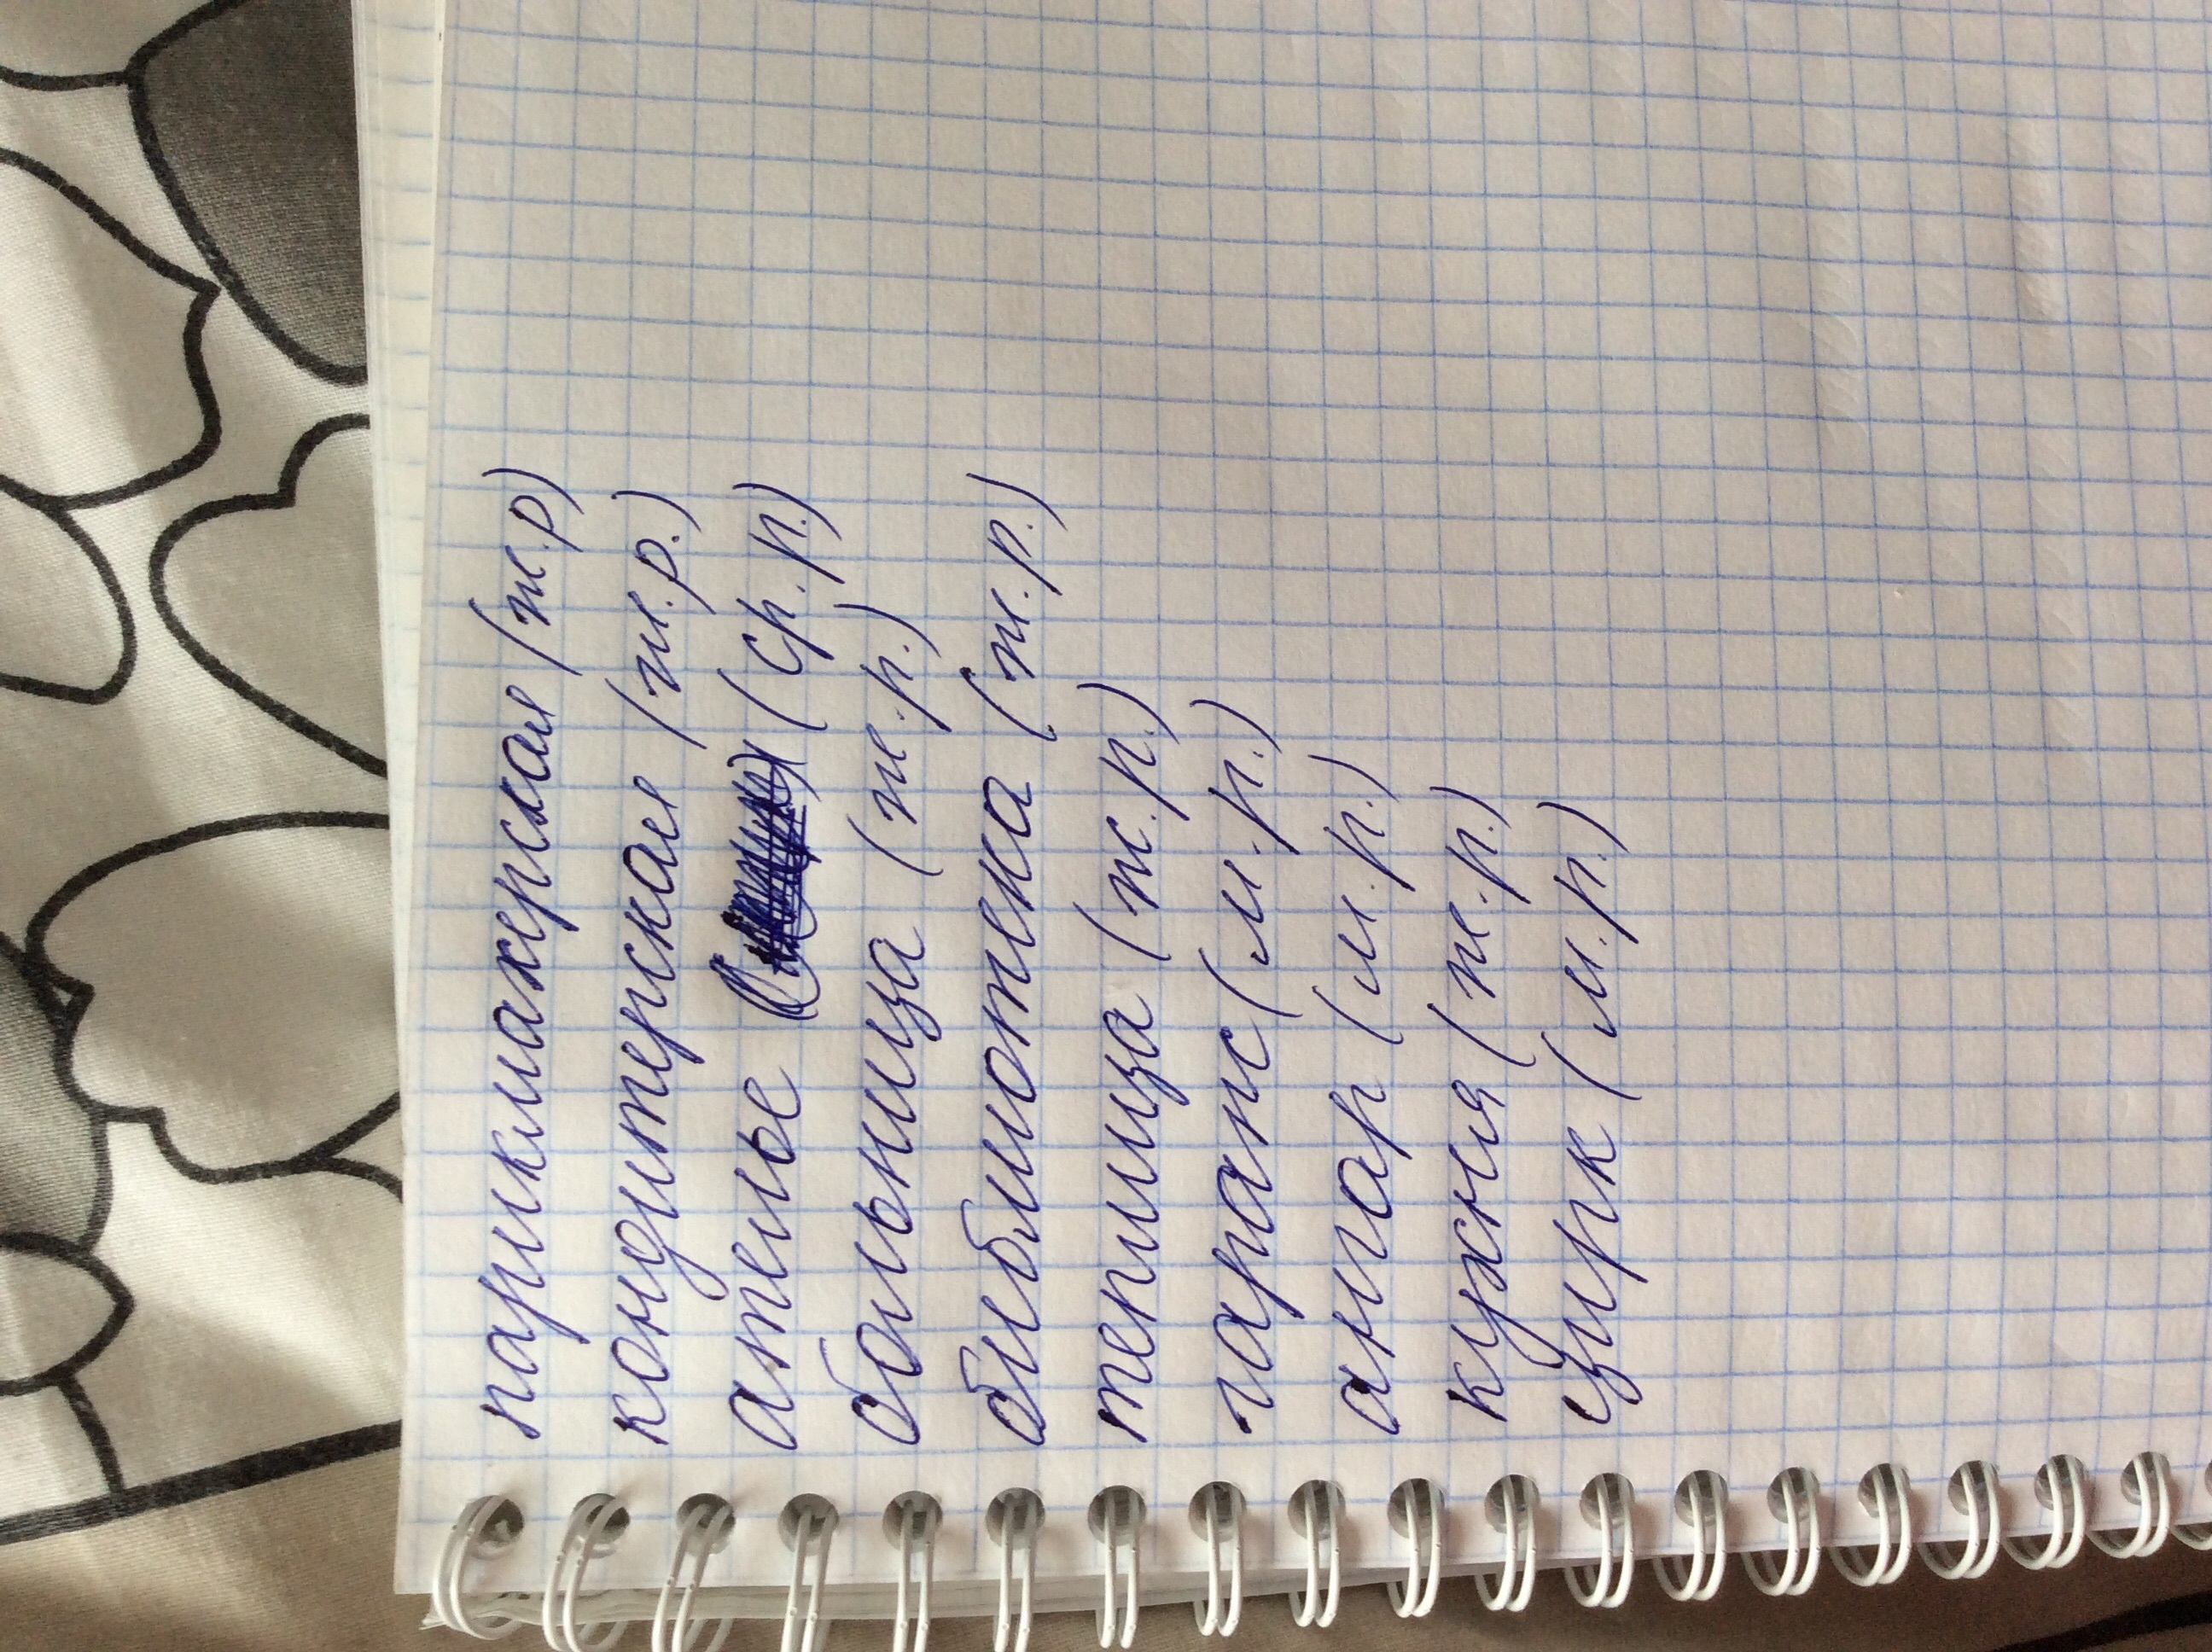 парикмахерская (ж.р)
кондитерская (ж.р.)
ателье (ср.р.)
больница (ж.р.)
библиотека (ж.р.)
теплица (ж.р.)
гараж (м.р.)
ангар (м.р.)
кухня (ж.р.)
цирк (м.р.)